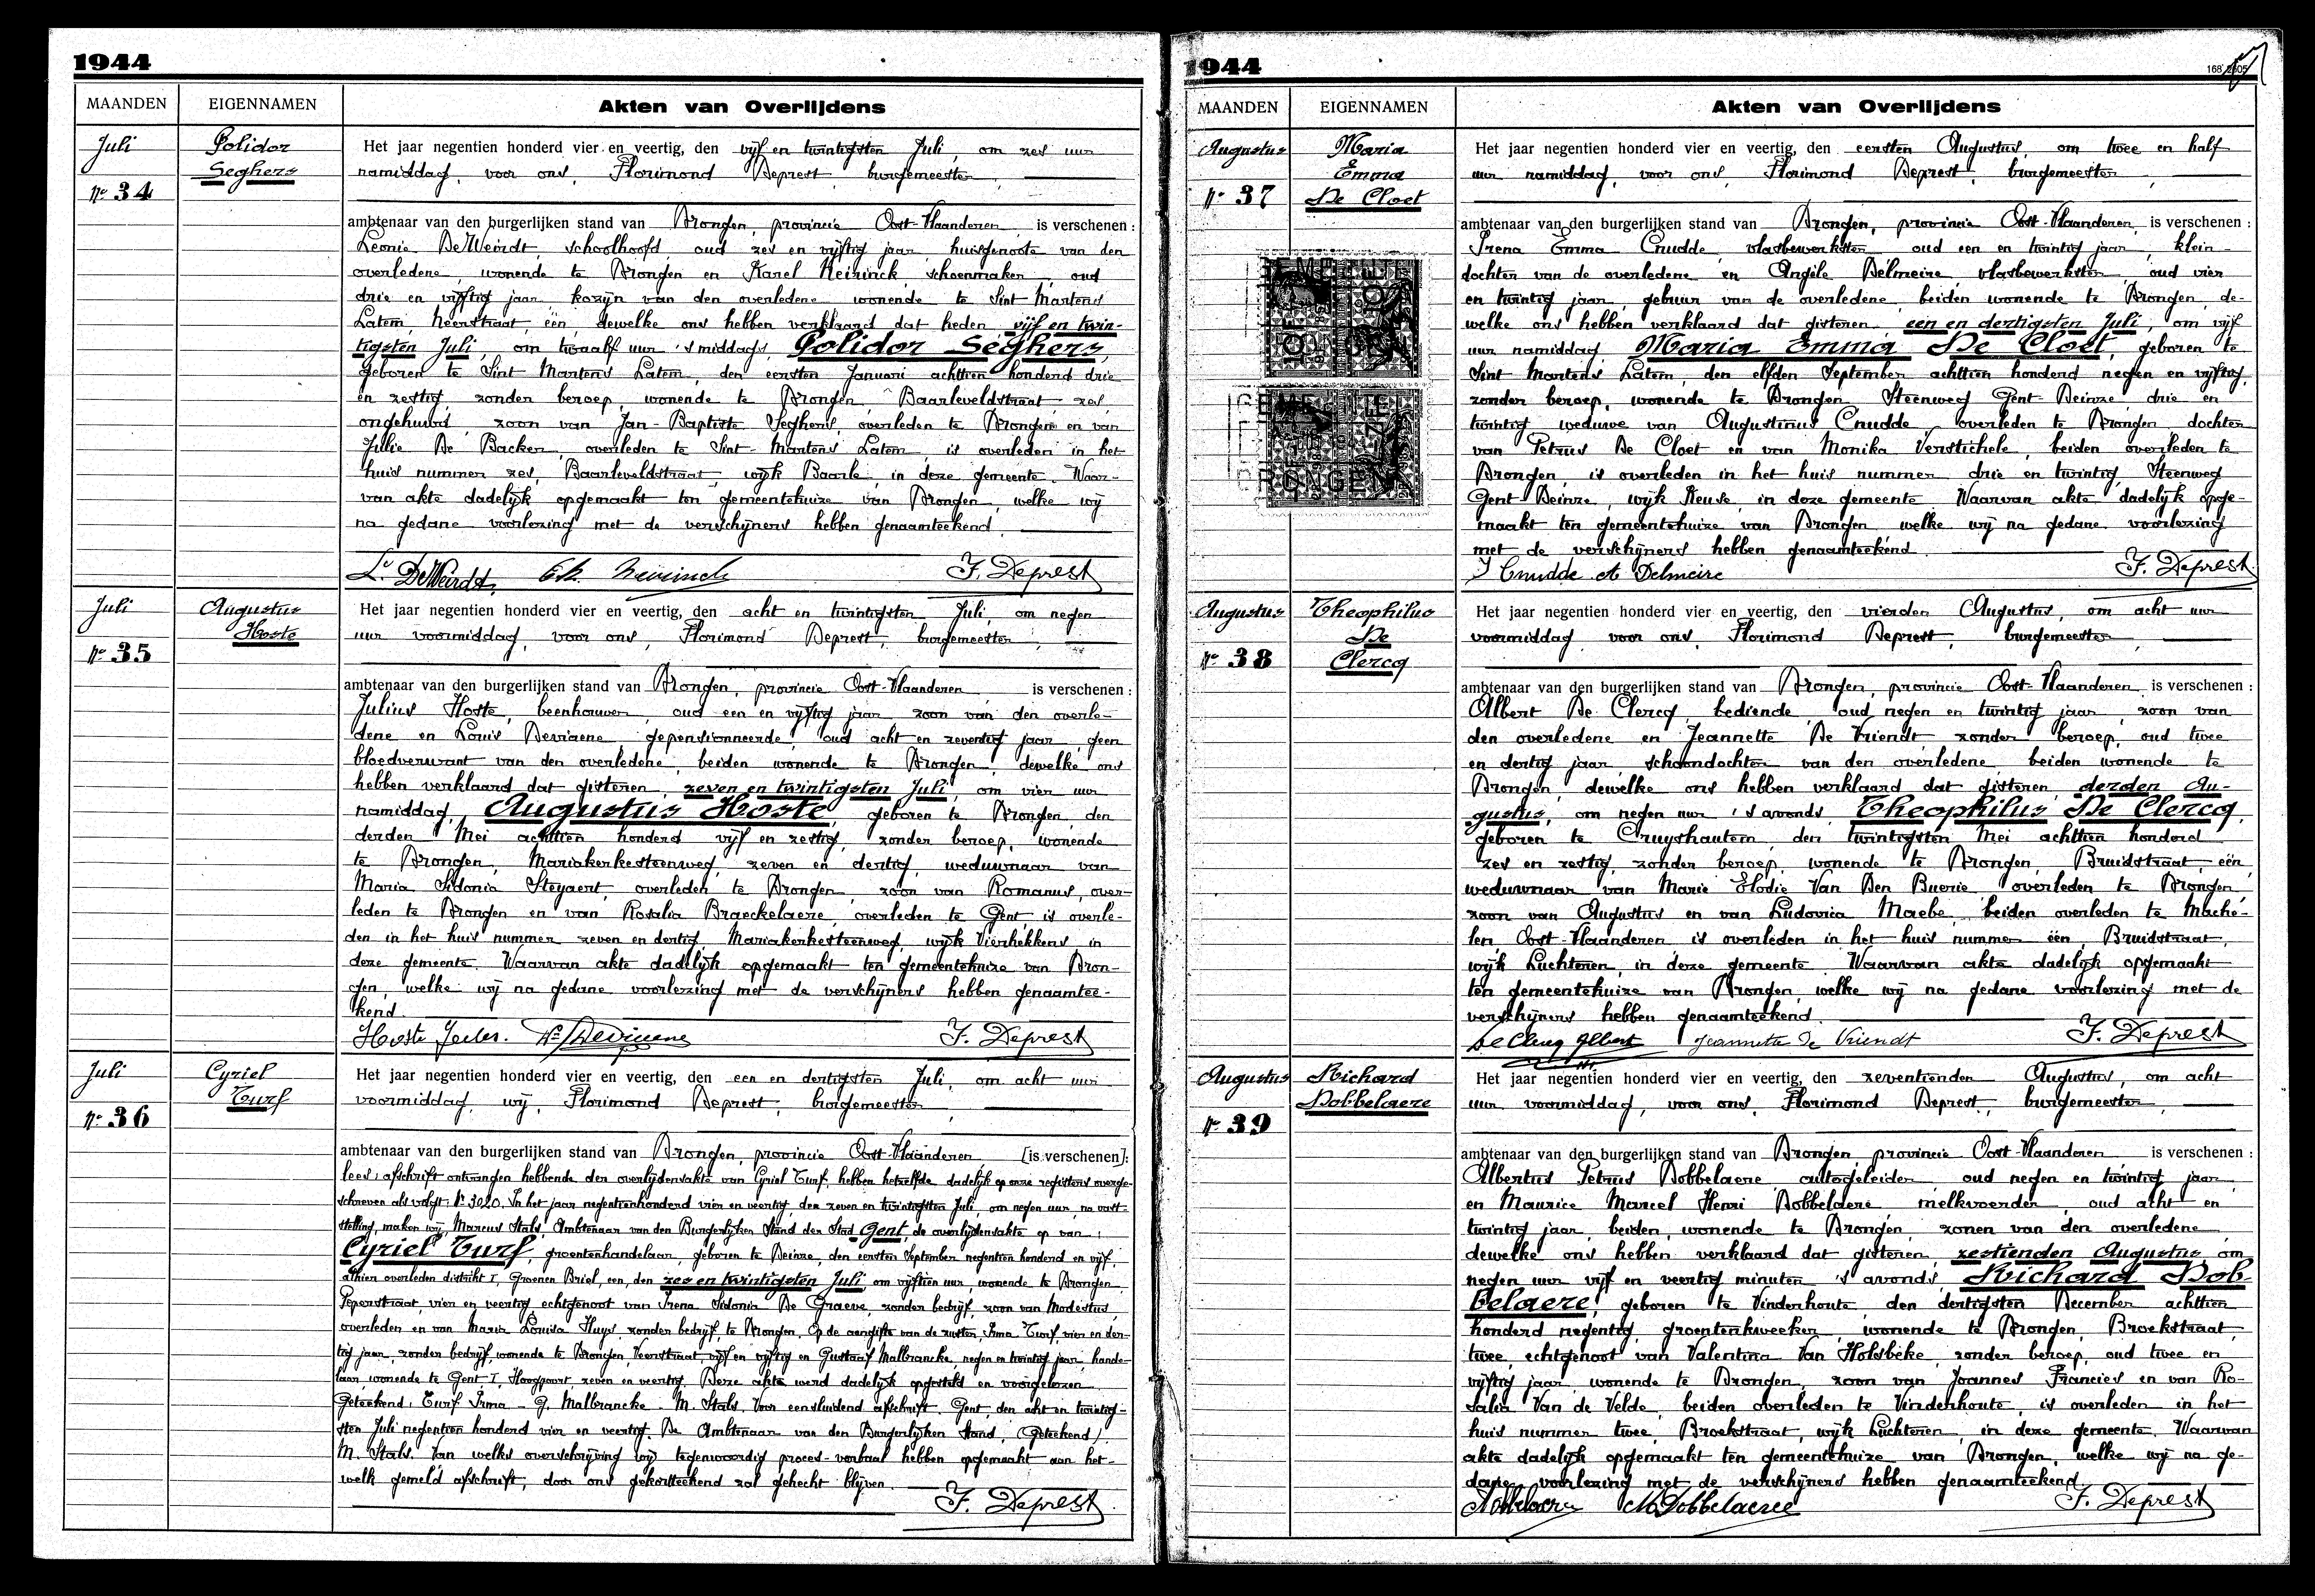 1944
MAANDEN
EIGENNAMEN
Akten van Overlijdens
Juli
Polidor
Seghers
No 34
Het jaar negentien honderd vier en veertig, den vijf en twintigsten Juli, om zes uur
namiddag, voor ons, Florimond Deprest, burgemeester,
ambtenaar van den burgerlijken stand van Drongen, provincie Oost-Vlaanderen, is verschenen :
Leonie DeWeirdt, schoolhoofd, oud zes en vijftig jaar, huisgenoote van den
overledene, wonende te Drongen en Karel Neirinck, schoenmaker, oud
drie en vijftig jaar, kozijn van den overledene wonende te Sint Martens
Latem, Neerstraat, één, dewelke ons hebben verklaard dat heden, vijf en twin-
tigsten Juli, om twaalf uur 's middags, Polidor Seghers,
geboren te Sint Martens Latem, den eersten Januari achttien honderd drie
en zestig, zonder beroep, wonende te Drongen, Baarleveldstraat, zes
ongehuwd, zoon van Jan-Baptiste Seghers, overleden te Drongen en van
Julie De Backer, overleden te Sint-Martens Latem, is overleden in het
huis nummer zes, Baarleveldstraat, wijk Baarle, in deze gemeente. Waar-
van akte dadelijk opgemaakt ten gemeentehuize van Drongen, welke wij
na gedane voorlezing met de verschijners hebben genaamteekend.
L. DeWeirdt. Neirinck F. Deprest
Juli
Augustus
Hoste
No 35
Het jaar negentien honderd vier en veertig, den acht en twintigsten Juli, om negen
uur voormiddag, voor ons, Florimond Deprest, burgemeester,
ambtenaar van den burgerlijken stand van Drongen, provincie Oost-Vlaanderen is verschenen :
Julius Hoste, beenhouwer, oud een en vijftig jaar zoon van den overle-
dene en Louis Deviaene, gepensionneerde, oud acht en zeventig jaar, geen
bloedverwant van den overledene, beiden wonende te Drongen, dewelke ons
hebben verklaard dat gisteren, zeven en twintigsten Juli, om vier uur
namiddag, Augustus Hoste, geboren te Drongen, den
derden Mei achttien honderd vijf en zestig, zonder beroep, wonende
te Drongen, Mariakerkesteenweg, zeven en dertig, weduwnaar van
Maria Sidonia Steyaert, overleden te Drongen, zoon van Romanus, over-
leden te Drongen en van Rosalia Braeckelaere, overleden te Gent, is overle-
den in het huis nummer zeven en dertig, Mariakerkesteenweg, wijk Vierhekkens, in
deze gemeente. Waarvan akte dadelijk opgemaakt ten gemeentehuize van Dron-
gen, welke wij na gedane voorlezing met de verschijners hebben genaamtee-
kend.
Hoste Jules. Deviaene F. Deprest
Juli
Cyriel
Turf
No 36
Het jaar negentien honderd vier en veertig, den een en dertigsten Juli, om acht uur
voormiddag, wij, Florimond Deprest, burgemeester,
ambtenaar van den burgerlijken stand van Drongen, provincie Oost-Vlaanderen [is verschenen]:
lees: afschrift ontvangen hebbende den overlijdensakte van Cyriel Turf, hebben hetzelfde dadelijk op onze registers overge-
schreven als volgt: No 3020. In het jaar negentienhonderd vier en veertig, den zeven en twintigsten Juli, om negen uur, na vast-
stelling, maken wij, Marcus Stals, Ambtenaar van den Burgerlijken Stand der Stad Gent, de overlijdensakte op van :
Cyriel Turf, groentenhandelaar, geboren te Deinze, den eersten September negentien honderd en vijf,
alhier overleden distrikt I, Groenen Briel, een, den zes en twintigsten Juli om vijftien uur, wonende te Drongen
Peperstraat, vier en veertig, echtgenoot van Irena Sidonia De Graeve, zonder bedrijf, zoon van Modestus,
overleden en van Maria Louisa Huys, zonder bedrijf, te Drongen. Op de aangifte van de zuster, Irma Turf, vier en der-
tig jaar, zonder bedrijf, wonende te Drongen, Veerstraat, vijf en vijftig en Gustaaf Malbrancke, negen en twintig jaar, hande-
laar wonende te Gent I, Hoogpoort zeven en veertig. Deze akte werd dadelijk opgesteld en voorgelezen.
Geteekend, Turf Irma - G. Malbrancke - M. Stals. Voor eensluidend afschrift. Gent, den acht en twintig-
sten Juli negentien honderd vier en veertig. De Ambtenaar van den Burgerlijken Stand, (Geteekend)
M. Stals. Van welke overschrijving wij tegenwoordig proces-verbaal hebben opgemaakt aan het-
welk gemeld afschrift, door ons gekortteekend zal gehecht blijven.
F. Deprest
1944
168
MAANDEN
EIGENNAMEN
Akten van Overlijdens
Augustus
Maria
Emma
De Cloet
No 37
DRONGEN
Het jaar negentien honderd vier en veertig, den eersten Augustus, om twee en half
uur namiddag, voor ons, Florimond Deprest, burgemeester,
ambtenaar van den burgerlijken stand van Drongen, provincie Oost-Vlaanderen, is verschenen :
Irena Emma Cnudde, vlasbewerkster, oud een en twintig jaar, klein-
dochter van de overledene en Angèle Delmeire, vlasbewerkster, oud vier
en twintig jaar, gebuur van de overledene, beiden wonende te Drongen, de-
welke ons hebben verklaard dat gisteren, een en dertigsten Juli, om vijf
uur namiddag, Maria Emma De Cloet, geboren te
Sint Martens Latem, den elfden September achttien honderd negen en vijftig,
zonder beroep, wonende te Drongen Steenweg Gent-Deinze, drie en
twintig weduwe van Augustinus Cnudde, overleden te Drongen, dochter
van Petrus De Cloet en van Monika Verstichele, beiden overleden te
Drongen, is overleden in het huis nummer drie en twintig, Steenweg
Gent Deinze, wijk Keuse, in deze gemeente. Waarvan akte dadelijk opge-
maakt ten gemeentehuize van Drongen welke wij na gedane voorlezing
met de verschijners hebben genaamteekend.
I Cnudde A Delmeire F. Deprest
Augustus
Theophilus
De
Clercq
No 38
Het jaar negentien honderd vier en veertig, den vierden Augustus, om acht uur
voormiddag voor ons, Florimond Deprest, burgemeester,
ambtenaar van den burgerlijken stand van Drongen, provincie Oost-Vlaanderen is verschenen :
Albert De Clercq, bediende, oud negen en twintig jaar, zoon van
den overledene en Jeannette De Vriendt, zonder beroep, oud twee
en dertig jaar, schoondochter van den overledene beiden wonende te
Drongen, dewelke ons hebben verklaard dat gisteren, derden Au-
gustus, om negen uur 's avonds, Theophilus De Clercq,
geboren te Cruyshautem, den twintigsten Mei achttien honderd
zes en zestig, zonder beroep, wonende te Drongen, Bruidstraat, één,
weduwnaar van Marie Elodie Van Den Buerie overleden te Drongen,
zoon van Augustus en van Ludovica Maebe, beiden overleden te Mache-
len, Oost-Vlaanderen is overleden in het huis nummer één, Bruidstraat,
wijk Luchteren, in deze gemeente. Waarvan akte dadelijk opgemaakt
ten gemeentehuize van Drongen, welke wij na gedane voorlezing met de
verschijners hebben genaamteekend.
De Clercq Albert Jeannette De Vriendt F. Deprest
Augustus
Richard
Dobbelaere
No 39
Het jaar negentien honderd vier en veertig, den zeventienden Augustus, om acht
uur voormiddag, voor ons, Florimond Deprest, burgemeester,
ambtenaar van den burgerlijken stand van Drongen provincie Oost-Vlaanderen is verschenen :
Albertus Petrus Dobbelaere, autogeleider, oud negen en twintig jaar
en Maurice Marcel Henri Dobbelaere melkvoerder, oud acht en
twintig jaar, beiden, wonende te Drongen, zonen van den overledene,
dewelke ons hebben verklaard dat gisteren, zestienden Augustus om
negen uur vijf en veertig minuten 's avonds, Richard Dob-
belaere, geboren te Vinderhoute, den dertigsten December achttien
honderd negentig, groentenkweeker, wonende te Drongen, Broekstraat,
twee, echtgenoot van Valentina Van Holsbeke, zonder beroep, oud twee en
vijftig jaar, wonende te Drongen, zoon van Joannes Francies en van Ro-
salia Van de Velde, beiden overleden te Vinderhoute, is overleden in het
huis nummer twee, Broekstraat, wijk Luchteren, in deze gemeente. Waarvan
akte dadelijk opgemaakt ten gemeentehuize van Drongen, welke wij na ge-
dane voorlezing met de verschijners hebben genaamteekend.
Dobbelaere M. Dobbelaere F. Deprest